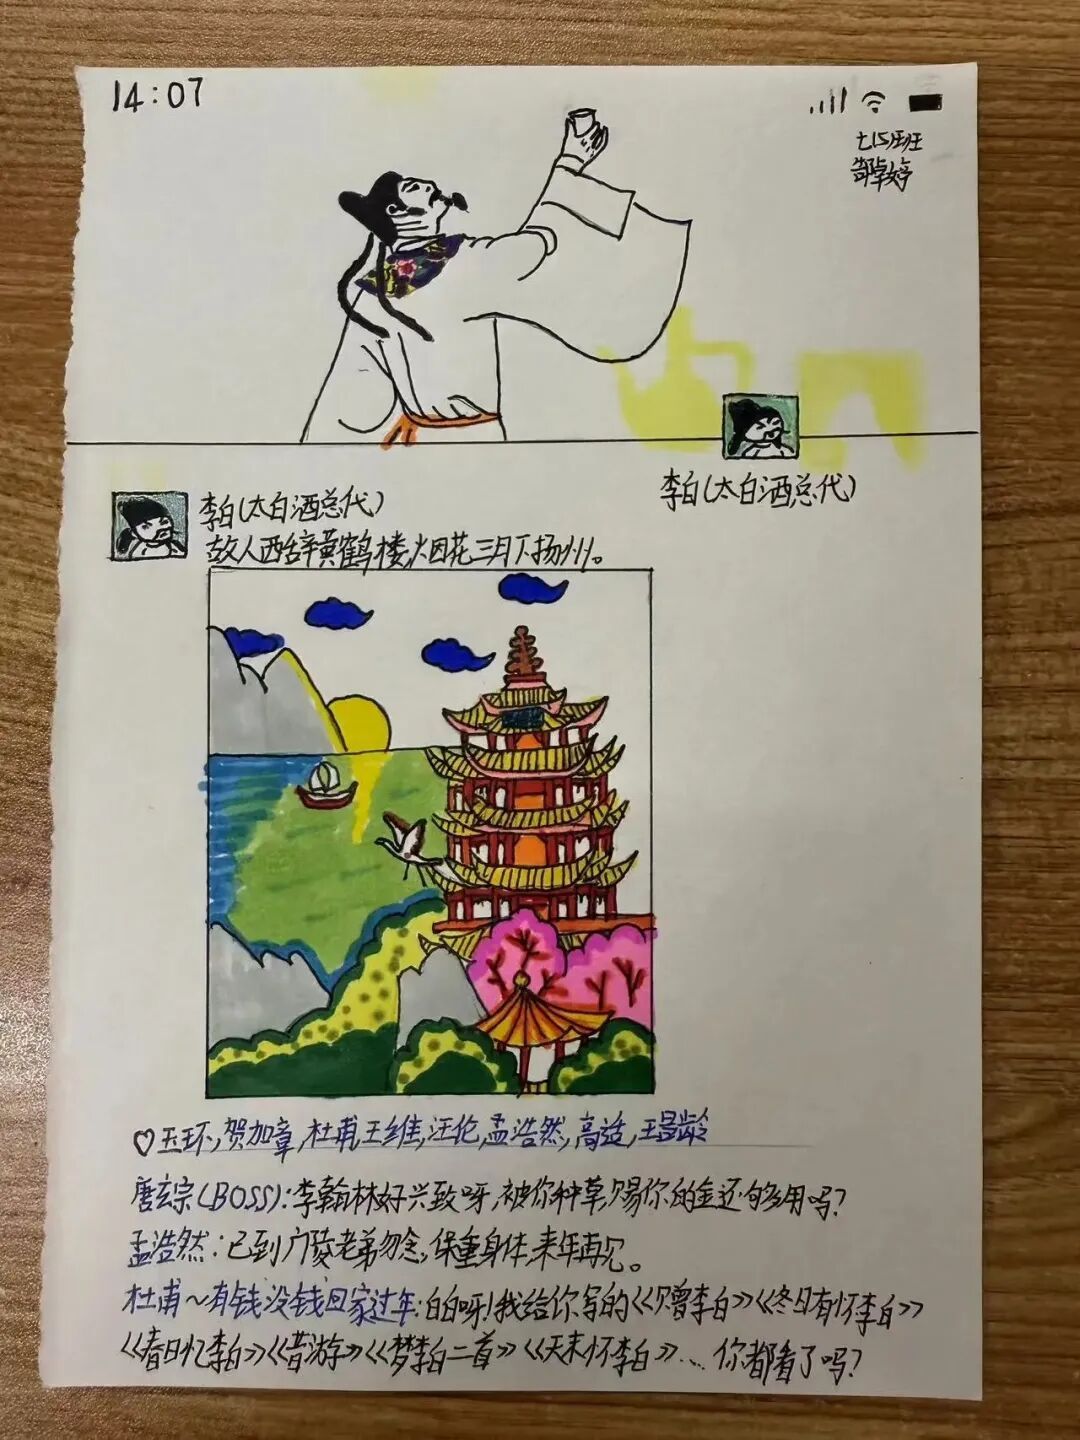 14:07
七(5)班
郜卓婷
李白(太白酒总代)
李白(太白酒总代)
故人西辞黄鹤楼,烟花三月下扬州。
♡玉环,贺知章,杜甫,王维,汪伦,孟浩然,高适,王昌龄
唐玄宗(BOSS):李翰林好兴致呀,被你种草,赐你的金还够多用吗?
孟浩然:已到广陵老弟勿念,保重身体,来年再见。
杜甫~有钱没钱回家过年:白白呀!我给你写的《赠李白》《冬日有怀李白》
《春日忆李白》《昔游》《梦李白二首》《天末怀李白》....你都看了吗?